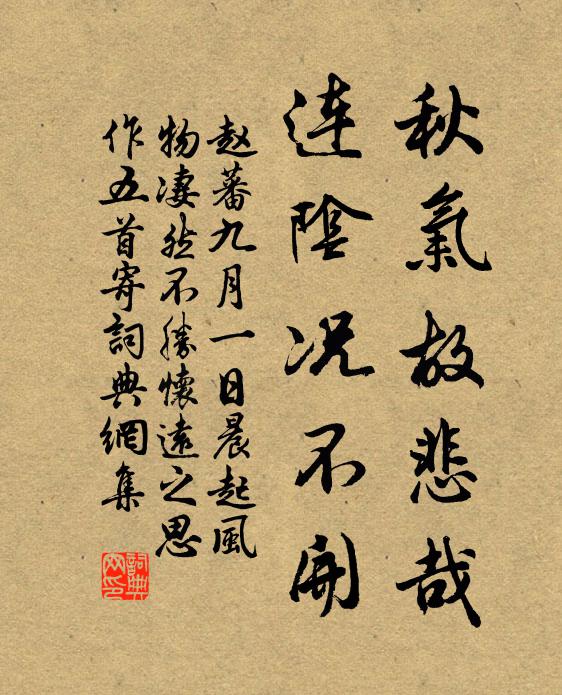 秋氣故悲哉
連陰况不開
赵蕃九月一日晨起風
物凄然不勝懷遠之思
作五首寄詞典網集
詞典
网印